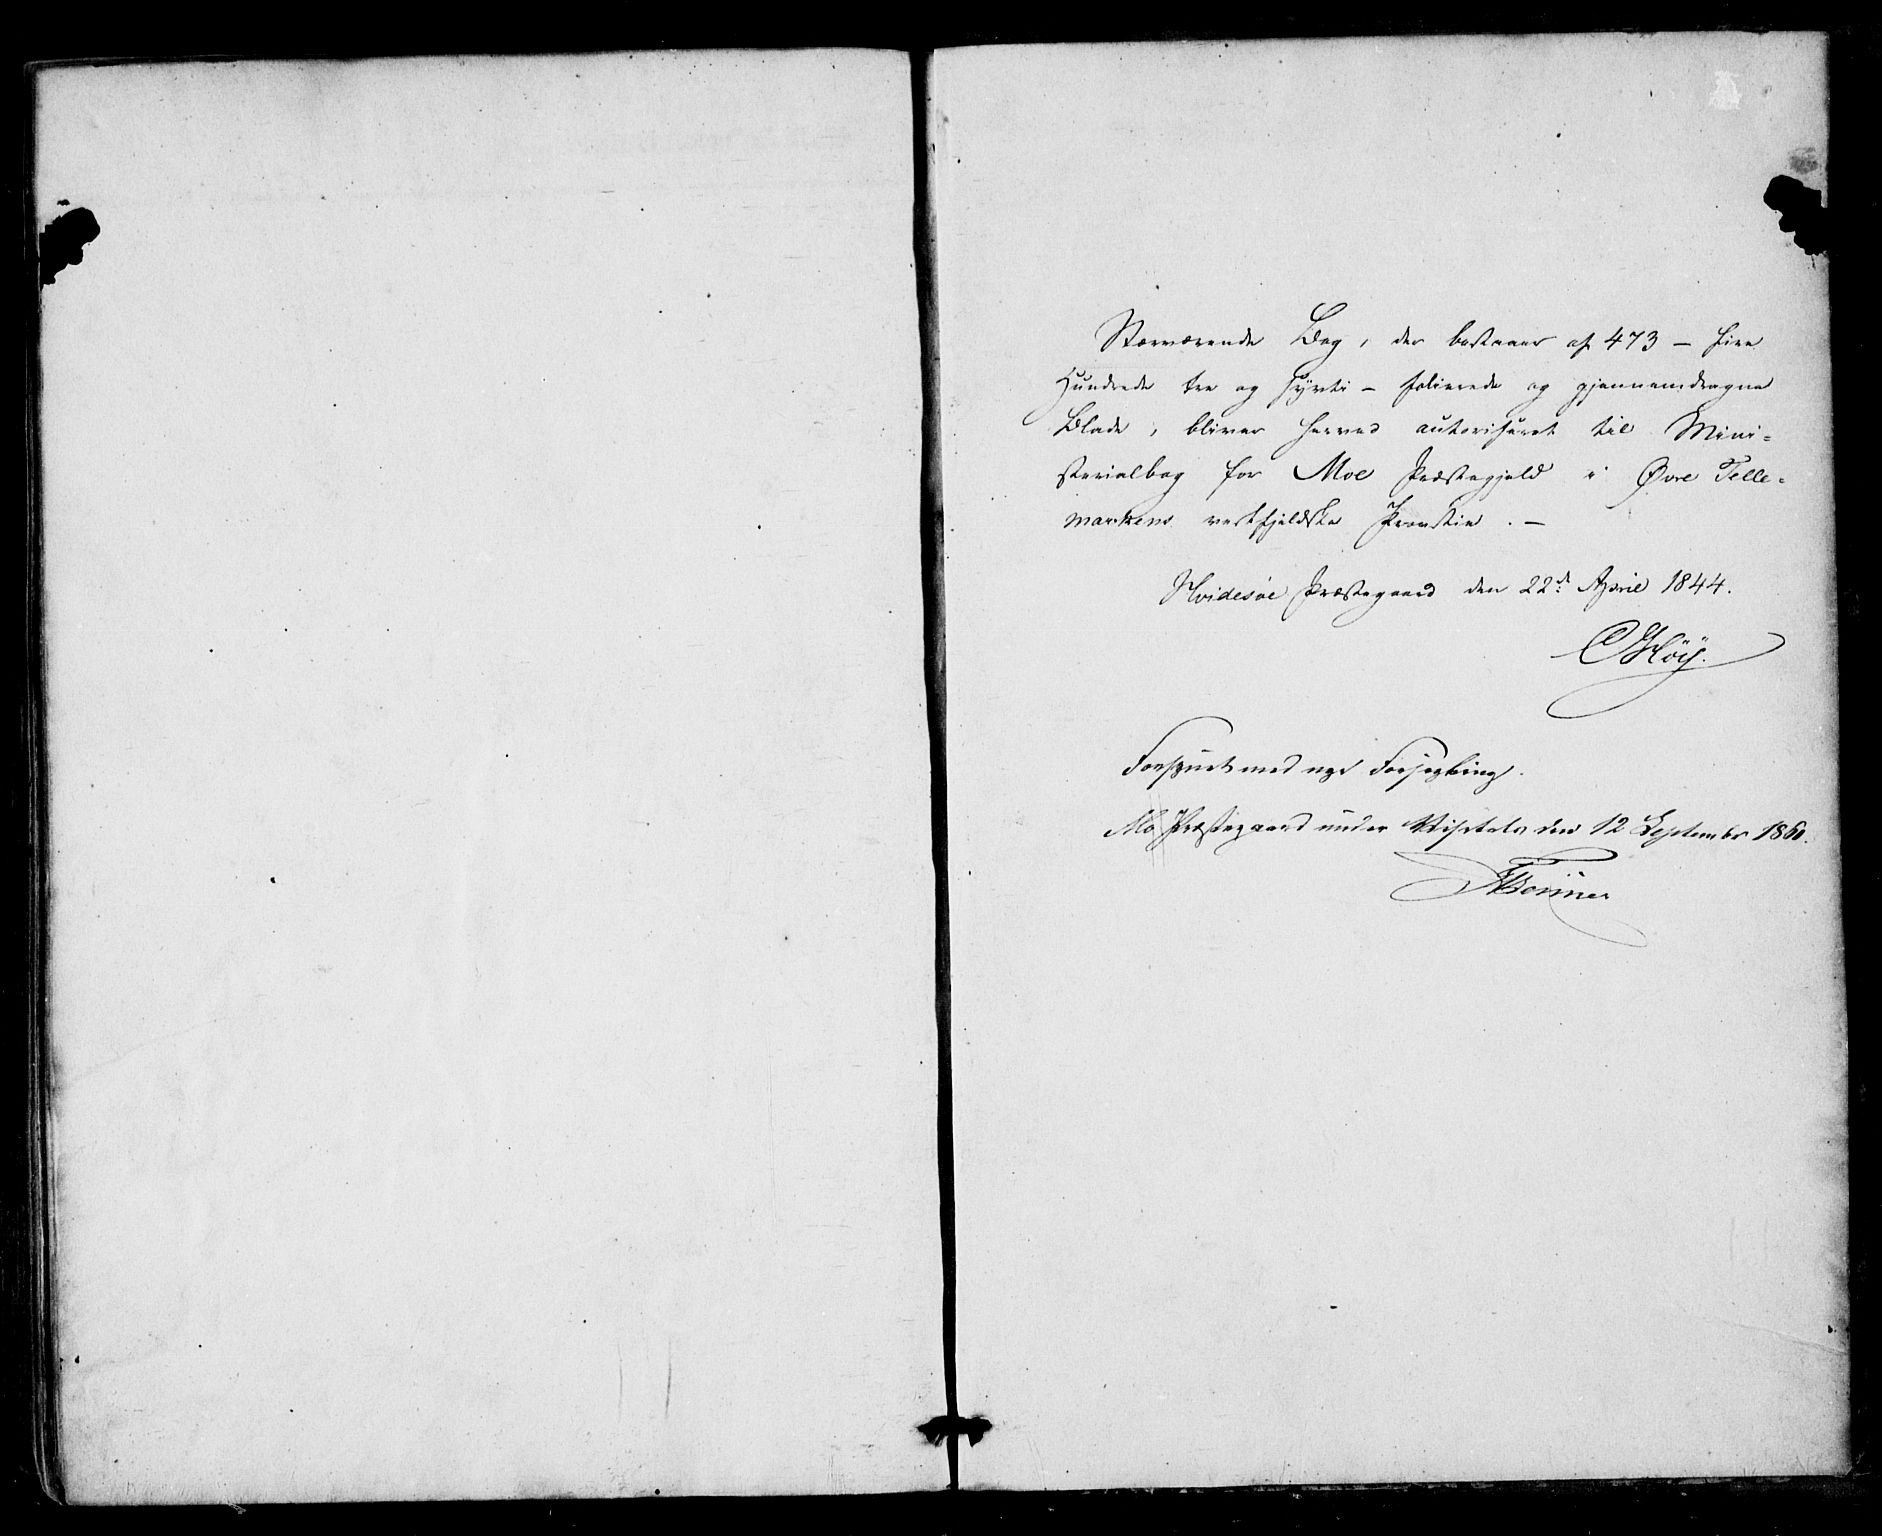 Nærværende Bog, der bestaaer af 473 – fire
Hundrede tre og syvti – folierede og gjennemdragne
Blade, bliver herved autoriseret til Mini=
sterialbog for Moe Præstegjeld i Øvre Telle=
markens vestfjeldske Provstie. –
Hvidesöe Præstegaard den 22d April 1844.
C Höÿ.
Forsÿnet med nye Forsegling.
Mo Præstegaard under Visitats den 12 September 1860.